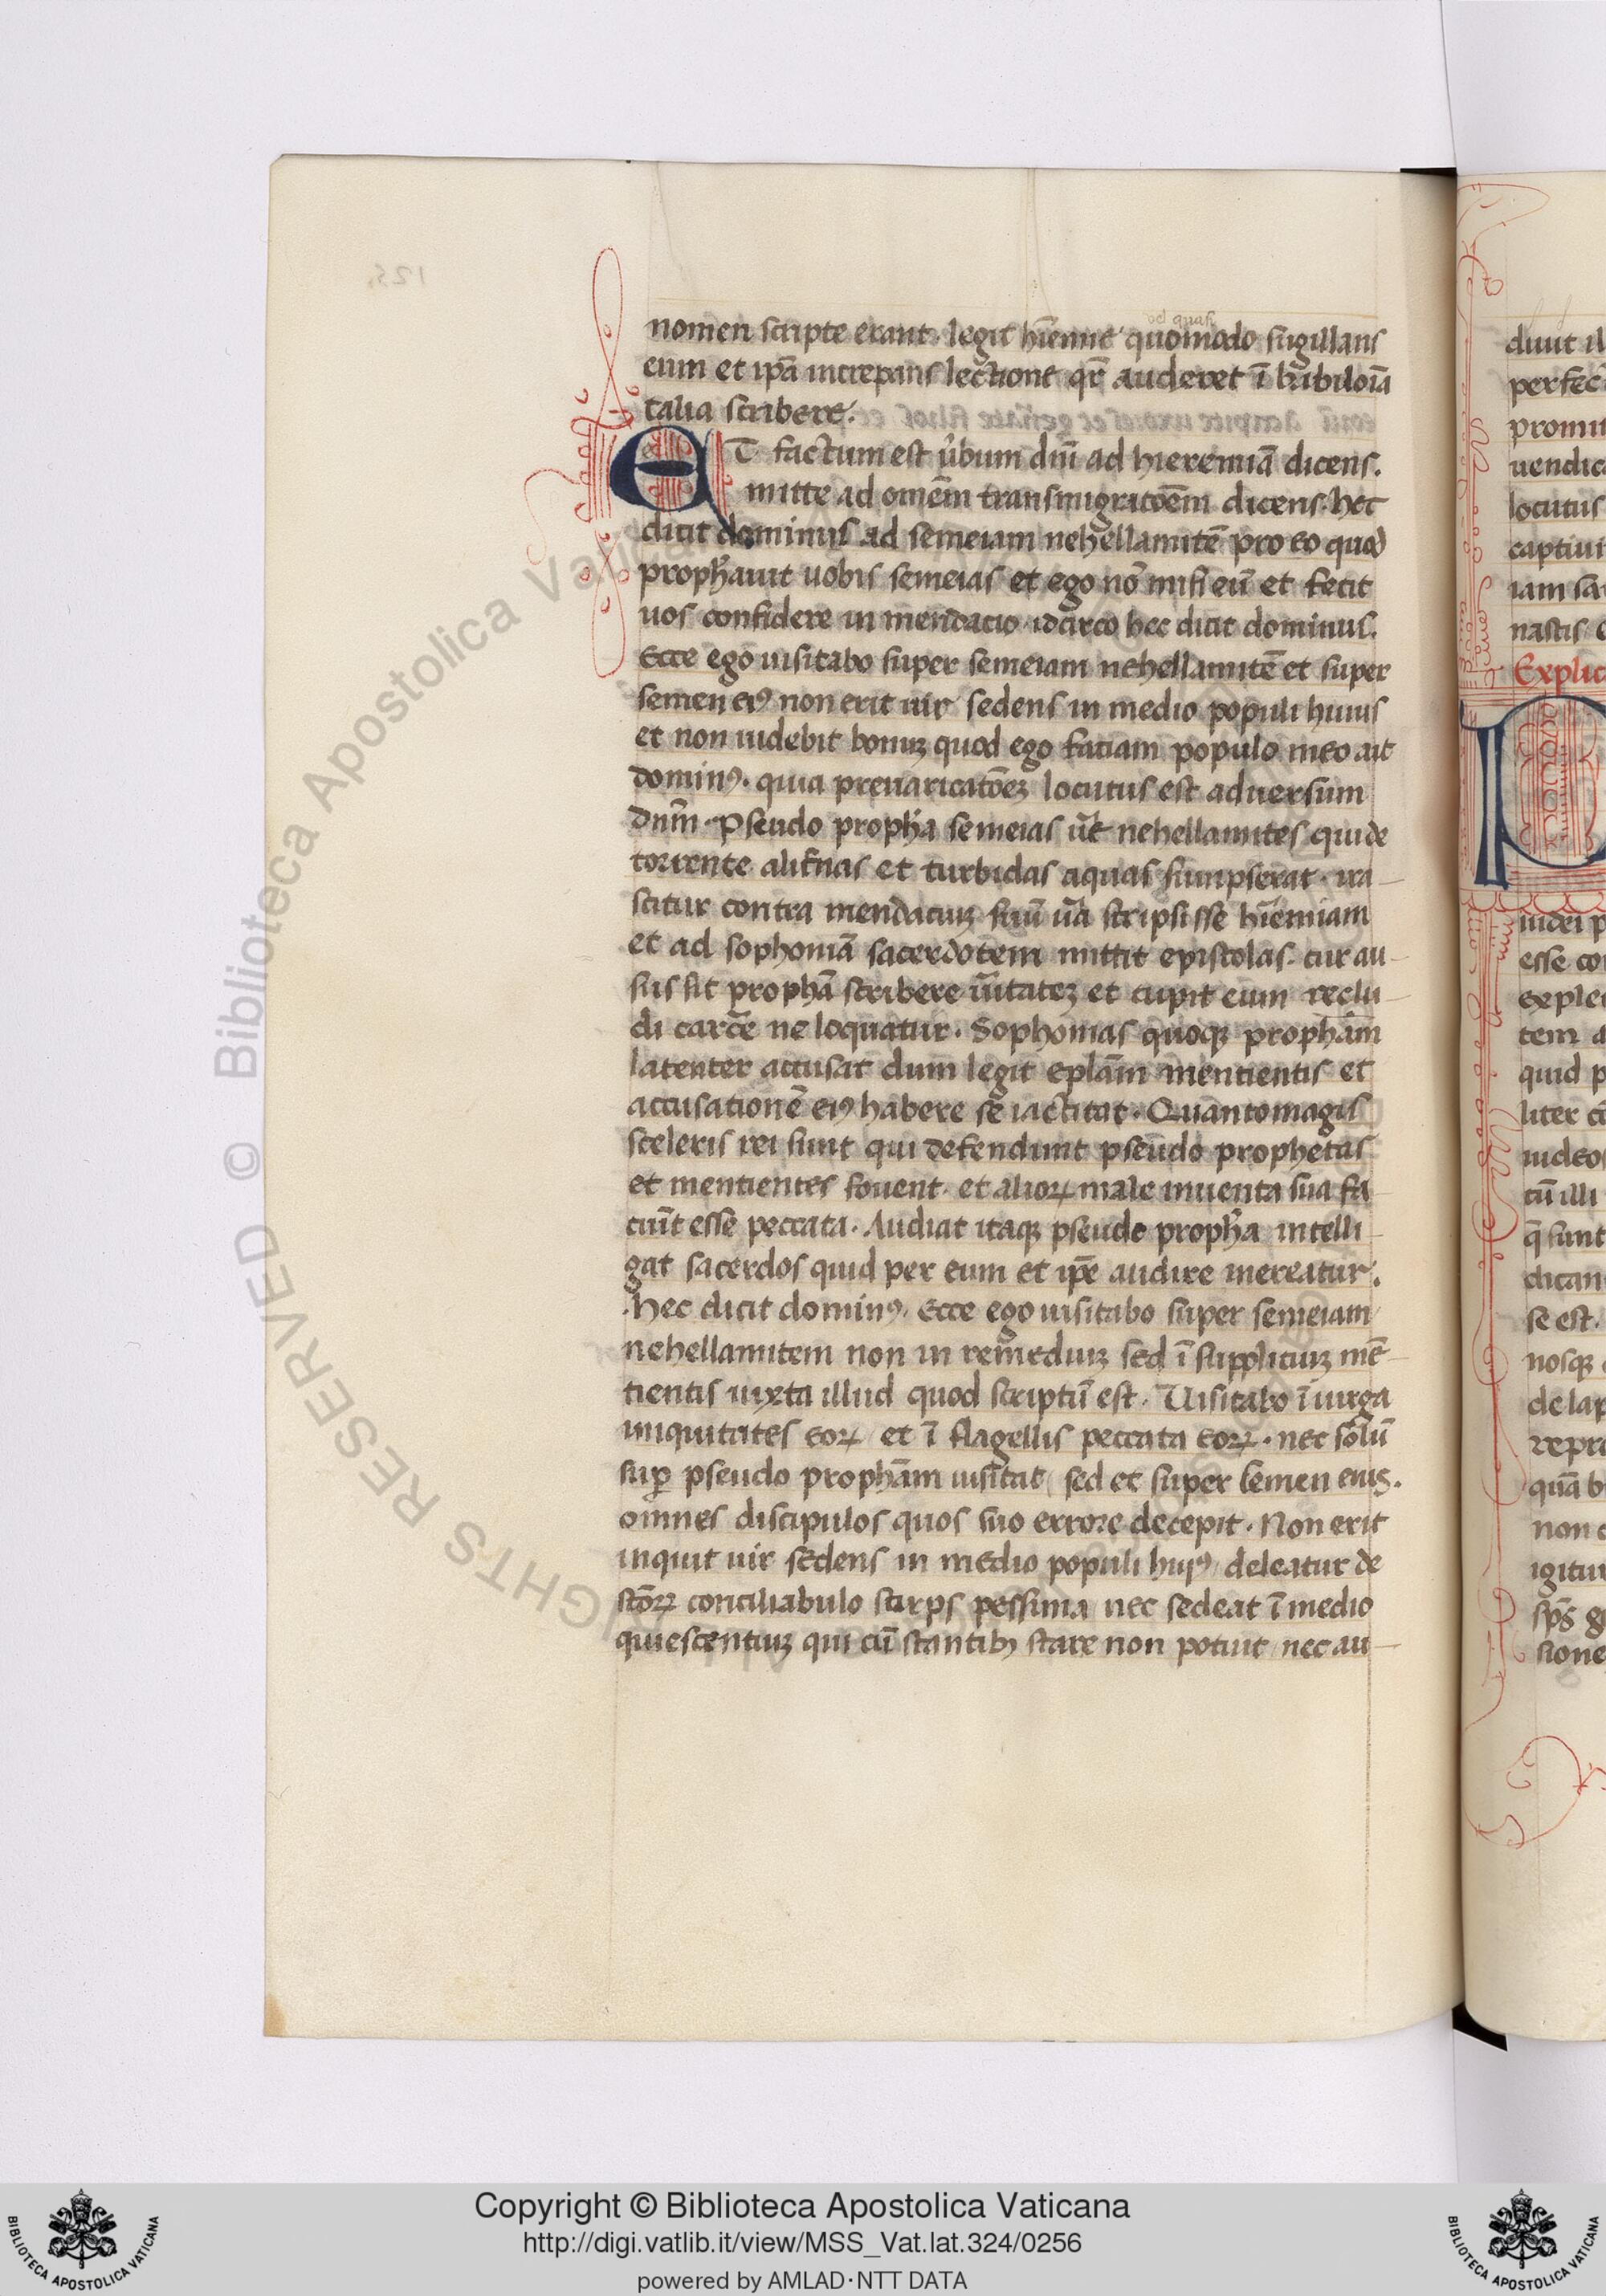 vel quasi
nomen scripte erant. legit hiemie quomodo sugillans
eum et ipā increpans lectione qr̄ auderet ī babiloīa
talia scribere.
ET factum est ūbum dnī ad hieremiā dicens.
mitte ad omēm transmigratōem dicens. hec
dicit dominus ad semeiam nehellamitē pro eo quod
prophauit uobis semeias et ego nō misi eū et fecit
uos confidere in mendacio. idcirco hec dicit dominus.
Ecce ego uisitabo super semeiam nehellamitē et super
semen eiꝰ non erit uir sedens in medio populi huius
et non uidebit bonuȝ quod ego faciam populo meo ait
dominꝰ. quia preuaricatōeȝ locutus est aduersum
dnm̄. Pseudo propha semeias ut̄ nehellamites qui de
torrente alienas et turbidas aquas sumpserat. ira-
scitur contra mendaciuȝ suū ūa scripsisse hiemiam
et ad sophoniā sacerdotem mittit epistolas. cur au-
sus sit prophā scribere ūitateȝ et cupit eum reclu-
di carc̄e ne loquatur. Sophonias quoqȝ prophām
latenter accusat dum legit eplām mentientis et
accusationē eiꝰ habere se iactitat. Quantomagis
sceleris rei sunt qui defendunt pseudo prophetas
et mentientes fouent. et alioꝝ male inuenta sua fa
ciūt esse peccata. Audiat itaqȝ pseudo propha intelli-
gat sacerdos quid per eum et ip̄e audire mereatur.
hec dicit dominꝰ. Ecce ego uisitabo super semeiam
nehellamitem non in remediuȝ sed ī suppliciuȝ mē-
tientis iuxta illud quod scriptū est. Uisitabo ī uirga
iniquitates eoꝝ et ī flagellis peccata eoꝝ. nec solū
suꝑ pseudo prophām uisitat sed et super semen eius.
omnes discipulos quos suo errore decepit. Non erit
inquit uir sedens in medio populi huiꝰ deleatur de
scōꝝ conciliabulo stirps pessima nec sedeat ī medio
quiescentiuȝ qui cū stantibȝ stare non potuit nec au-
Copyright © Biblioteca Apostolica Vaticana
http://digi.vatlib.it/view/MSS_Vat.lat.324/0256
powered by AMLAD·NTT DATA
BIBLIOTECA APOSTOLICA VATICANA
BIBLIOTECA APOSTOLICA VATICANA